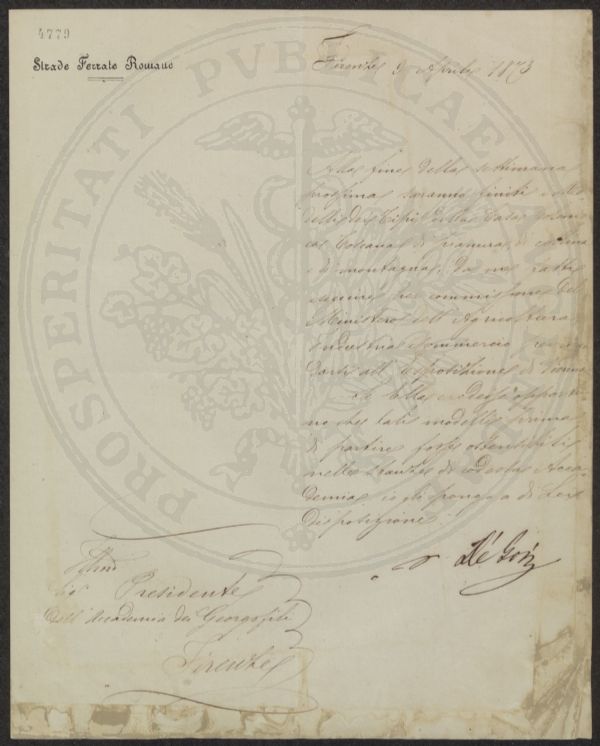 4779
Strade Ferrate Romane
PROSPERITATI PVBLICAE
Firenze 9 Aprile 1873
Alla fine della settimana
prossima saranno finiti i mo
delli dei tipi della Casa coloni
ca Toscana di pianura, di collina
e di montagna, da me fatti
eseguire per commissione del
Ministero dell' Agricoltura
Industria e Commercio per
all' Esposizione di Vienna
Se Ella crede opportu
no che tali modelli prima
di partire fossero ostensibili
nelle stanze di codesta Acca
demia io li pongo a di Lei
disposizione
Presidente
dell' Accademia dei Georgofili
Firenze